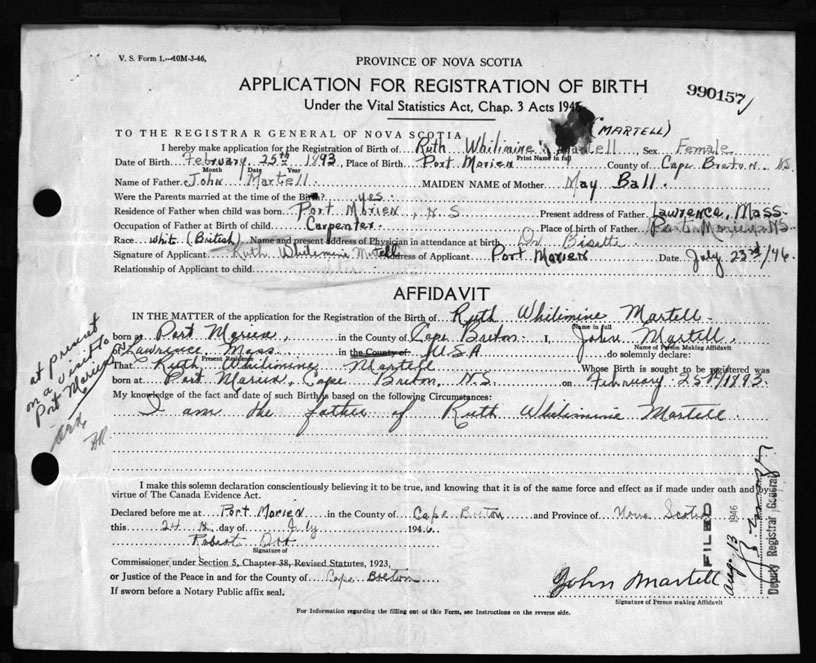 V. S. Form 1.—10M-3-46.
PROVINCE OF NOVA SCOTIA
APPLICATION FOR REGISTRATION OF BIRTH
990157
Under the Vital Statistics Act, Chap. 3 Acts
(MARTELL)
TO THE REGISTRAR GENERAL OF NOVA SCOTIA
I hereby make application for the Registration of Birth of Ruth Whilimine Martell, Sex Female
Print Name in full
Date of Birth February 25th 1893, Place of Birth Port Morien County of Cape Breton N.S.
Month Date Year
Name of Father John Martell MAIDEN NAME of Mother May Ball.
Were the Parents married at the time of the Birth? yes
Residence of Father when child was born Port Morien, N.S. Present address of Father Lawrence, Mass.
Occupation of Father at Birth of child Carpenter Place of birth of Father Port Morien N.S.
Race White (British) Name and present address of Physician in attendance at birth Dr Bisette
Signature of Applicant Ruth Whilimine Martell Address of Applicant Port Morien Date July 23rd/46
Relationship of Applicant to child
AFFIDAVIT
IN THE MATTER of the application for the Registration of the Birth of Ruth Whilimine Martell
Name in full
born at Port Morien, in the County of Cape Breton I, John Martell,
Name of Person Making Affidavit
of Lawrence, Mass in the County of USA do solemnly declare:
Present Residence
That Ruth Whilimine Martell Whose Birth is sought to be registered was
born at Port Morien, Cape Breton, N.S. on February 25th/1893.
My knowledge of the fact and date of such Birth is based on the following Circumstances:
I am the father of Ruth Whilimine Martell.
at present
on a visit to
Port Morien
I make this solemn declaration conscientiously believing it to be true, and knowing that it is of the same force and effect as if made under oath and by
virtue of The Canada Evidence Act.
Declared before me at Port Morien in the County of Cape Breton and Province of Nova Scotia
this 24th day of July 1946.
Signature of
Commissioner under Section 5, Chapter 38, Revised Statutes, 1923,
or Justice of the Peace in and for the County of Cape Breton
If sworn before a Notary Public affix seal.
John Martell
Signature of Person making Affidavit
FILED
Aug. 13 1946
Deputy Registrar General
For Information regarding the filling out of this Form, see Instructions on the reverse side.